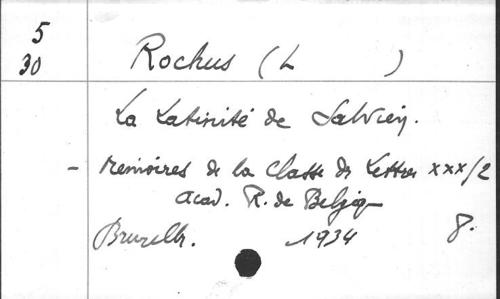 5
30
Rochus (L )
La Latinité de Salvien.
- Mémoires de la Classe des Lettres XXX/2
Acad. R. de Belgiq
Bruxelles. 1934 8.